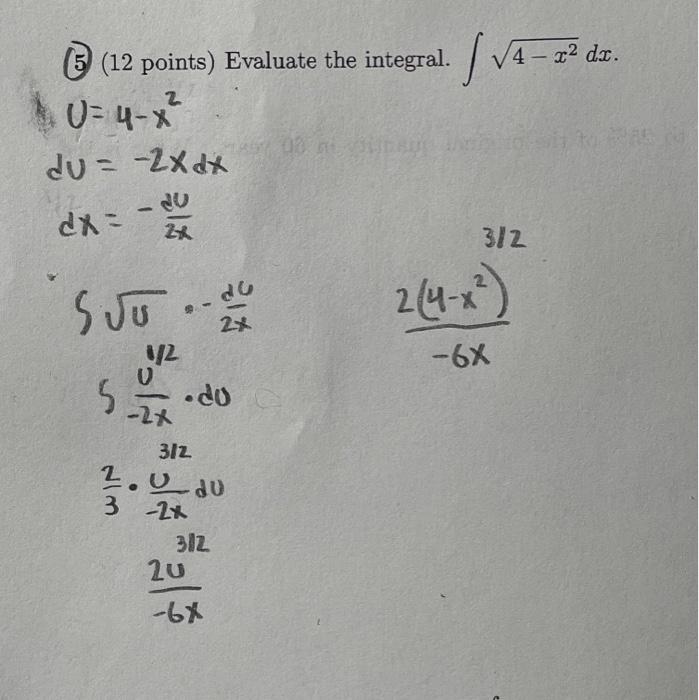 5 (12 points) Evaluate the integral. ∫ √(4 − x²) dx.
U = 4-x²
dU = -2x dx
dx = - dU/2x
∫ √U · - dU/2x
∫ U^(1/2)/-2x · dU
2/3 · U^(3/2)/-2x dU
2U^(3/2)/-6x
2(4-x²)^(3/2)/-6x